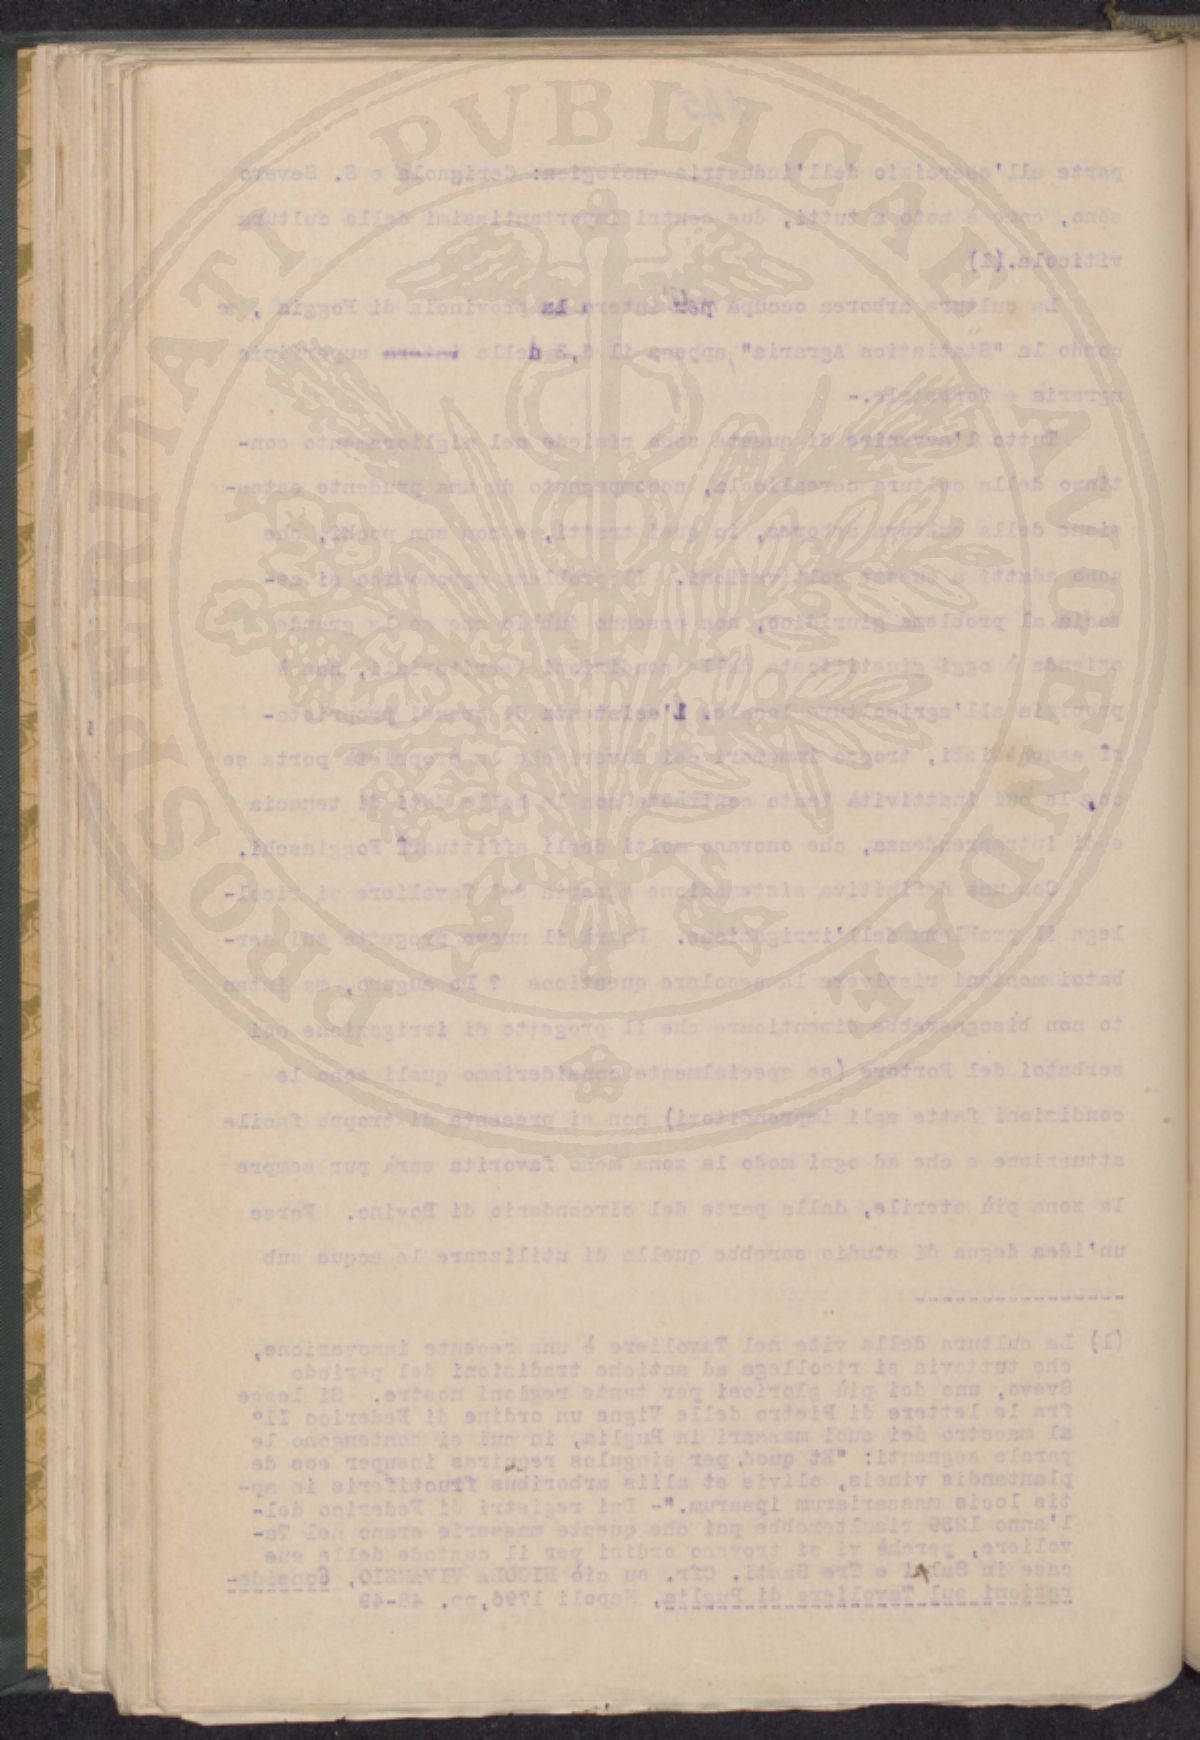 445
parte all'esercizio dell'industria enologica: Cerignola e S. Severo
sono, come è noto a tutti, due centri importantissimi della cultura
viticola.(1)
La cultura arborea occupa intera la provincia di Foggia
condo la "Statistica Agraria" appena il 6,3 della intera superficie
agraria e forestale.-
Tutto l'avvenire di questa zona risiede nel miglioramento con-
tinuo della cultura cerealicola, accompagnato da una prudente esten-
sione della cultura arborea, in quei tratti, e non son pochi, che
sono adatti a questa Il problema agronomico si
al problema giuridico, non essendo dubbio che se la grande
azienda è oggi giustificata dalle condizioni territoriali, non è
propizia all'agricoltura locale, l'esistenza di grandi proprieta-
rî troppo immemori dei doveri che la proprietà porta se
co, la cui inattività tanto contrasta con le belle doti di tenacia
e di intraprendenza, che onorano molti degli affittuarî Foggiaschi.
Con una definitiva sistemazione agraria del Tavoliere si ricol-
lega il problema dell'irrigazione. Potrà il nuovo progetto sui ser-
batoi montani risolvere la secolare questione ? Lo auguro, ma intan
to non bisognerebbe dimenticare che il progetto di irrigazione coi
serbatoi del Fortore (se specialmente consideriamo quali sono le
condizioni fatte agli imprenditori) non si presenta di troppo facile
attuazione e che ad ogni modo la zona meno favorita sarà pur sempre
la zona più sterile, dalla parte del circondario di Bovino. Forse
un'idea degna di studio sarebbe quella di utilizzare le acque sub
------------------
(1) La cultura della vite nel Tavoliere è una recente innovazione,
che tuttavia si ricollega ad antiche tradizioni del periodo
Svevo, uno dei più gloriosi per tante regioni nostre. Si legge
fra le lettere di Pietro delle Vigne un ordine di Federico II°
al maestro dei suoi massari in Puglia, in cui si contengono le
parole seguenti: "Et quod per singulos requiras insuper eos de
plantandis vineis, olivis et aliis arboribus fructiferis in ap-
tis locis massariarum ipsarum."- Dai registri di Federico del-
l'anno 1239 risulterebbe poi che queste masserie erano nel Ta-
voliere, perchè vi si trovano ordini per il custode delle sue
case in Salpi e Tre Santi. Cfr. su ciò NICOLA VIVENZIO, Conside-
razioni sul Tavoliere di Puglia, Napoli 1796,pp. 48-49
PROSPERITATI PVBLICAE AVGENDAE